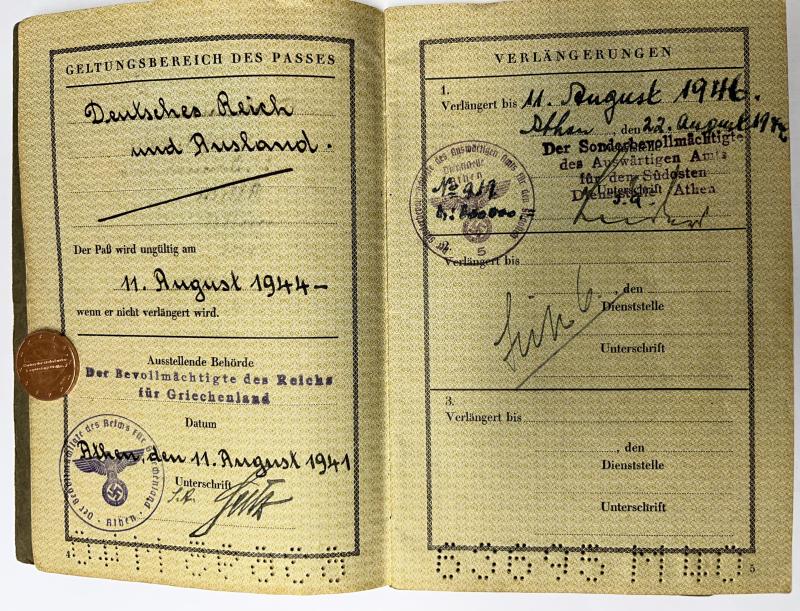 GELTUNGSBEREICH DES PASSES
Deutsches Reich
und Ausland.
Der Paß wird ungültig am
11. August 1944-
wenn er nicht verlängert wird.
Ausstellende Behörde
Der Bevollmächtigte des Reichs
für Griechenland
Datum
Athen, den 11. August 1941
Unterschrift
Der Bevollmächtigte des Reichs für Griechenland
Athen
4
VERLÄNGERUNGEN
1.
Verlängert bis 11. August 1946.
Athen, den 22. August 1944
Der Sonderbevollmächtigte
des Auswärtigen Amts
für den Südosten
Dienststelle Athen
Unterschrift
des Auswärtigen Amts für den
Dienststelle
Athen
No 919
5
2.
Verlängert bis
, den
Dienststelle
Unterschrift
3.
Verlängert bis
, den
Dienststelle
Unterschrift
5